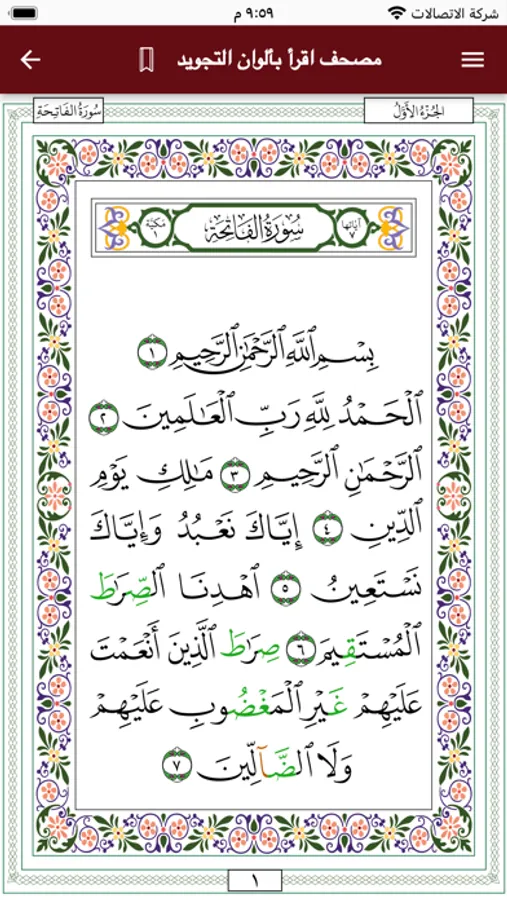 شركة الاتصالات ٩:٥٩ م
مصحف اقرأ بألوان التجويد
الجُزْءُ الأَوَّلُ سُورَةُ الفَاتِحَةِ
آيَاتُهَا ٧ سُورَةُ الفَاتِحَةِ مَكِّيَّة ١
بِسْمِ ٱللَّهِ ٱلرَّحْمَٰنِ ٱلرَّحِيمِ ١
ٱلْحَمْدُ لِلَّهِ رَبِّ ٱلْعَٰلَمِينَ ٢
ٱلرَّحْمَٰنِ ٱلرَّحِيمِ ٣ مَٰلِكِ يَوْمِ
ٱلدِّينِ ٤ إِيَّاكَ نَعْبُدُ وَإِيَّاكَ
نَسْتَعِينُ ٥ ٱهْدِنَا ٱلصِّرَٰطَ
ٱلْمُسْتَقِيمَ ٦ صِرَٰطَ ٱلَّذِينَ أَنْعَمْتَ
عَلَيْهِمْ غَيْرِ ٱلْمَغْضُوبِ عَلَيْهِمْ
وَلَا ٱلضَّآلِّينَ ٧
١